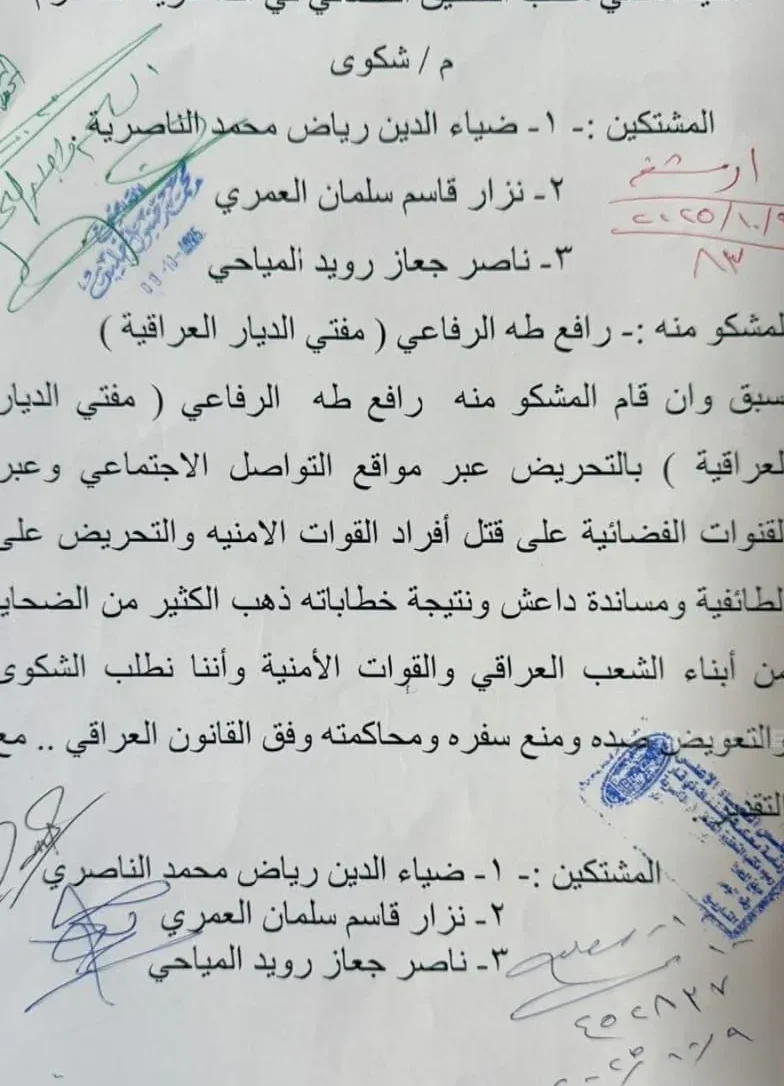 م / شكوى
المشتكين :- ١- ضياء الدين رياض محمد الناصرية
٢- نزار قاسم سلمان العمري
٣- ناصر جعاز رويد المياحي
ارشفه
٢٠٢٥/١٠/٩
٨٣
لمشكو منه :- رافع طه الرفاعي ( مفتي الديار العراقية )
سبق وان قام المشكو منه رافع طه الرفاعي ( مفتي الديار
لعراقية ) بالتحريض عبر مواقع التواصل الاجتماعي وعبر
لقنوات الفضائية على قتل أفراد القوات الامنيه والتحريض على
لطائفية ومساندة داعش ونتيجة خطاباته ذهب الكثير من الضحايا
من أبناء الشعب العراقي والقوات الأمنية وأننا نطلب الشكوى
والتعويض ضده ومنع سفره ومحاكمته وفق القانون العراقي .. مع
التقدير
المشتكين :- ١- ضياء الدين رياض محمد الناصري
٢- نزار قاسم سلمان العمري
٣- ناصر جعاز رويد المياحي